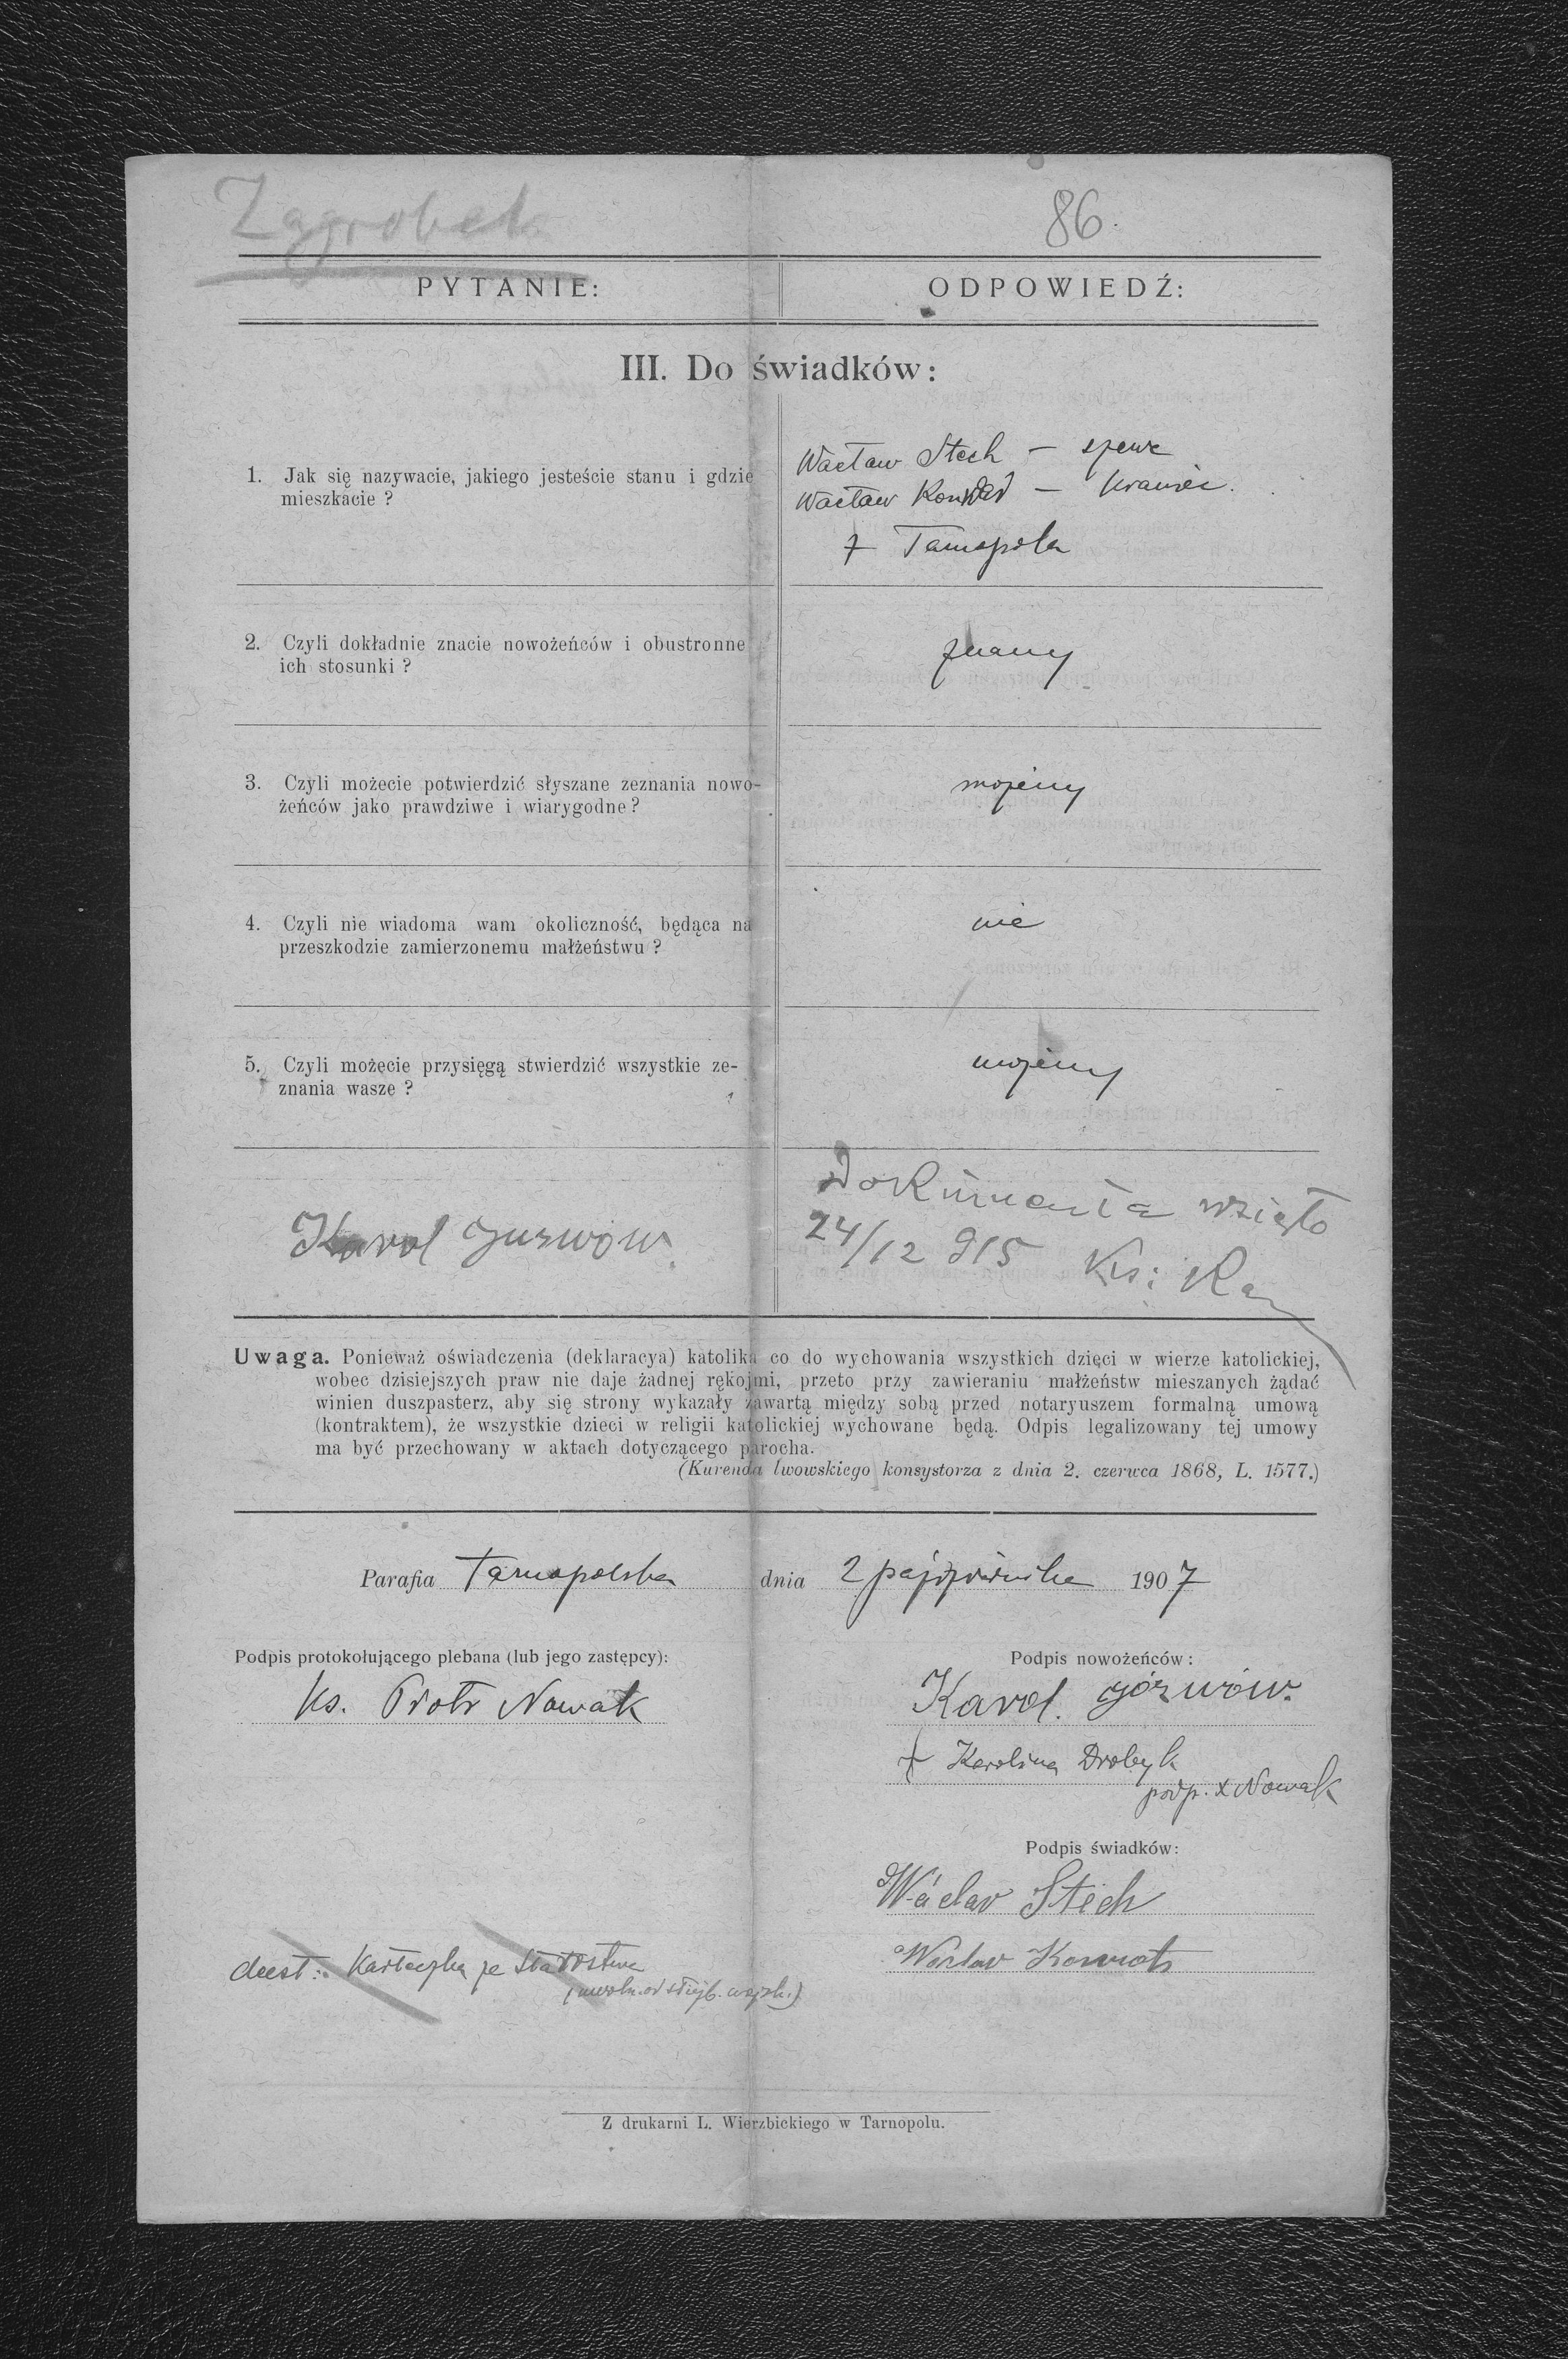 Zagrobela
86.
PYTANIE:
ODPOWIEDŹ:
III. Do świadków:
1. Jak się nazywacie, jakiego jesteście stanu i gdzie
mieszkacie ?
Wacław Stech — szewc
Wacław Konrad — krawiec.
z Tarnopola
2. Czyli dokładnie znacie nowożeńców i obustronne
ich stosunki ?
znamy
3. Czyli możecie potwierdzić słyszane zeznania nowo-
żeńców jako prawdziwe i wiarygodne ?
możemy
4. Czyli nie wiadoma wam okoliczność, będąca na
przeszkodzie zamierzonemu małżeństwu ?
nie
5. Czyli możecie przysięgą stwierdzić wszystkie ze-
znania wasze ?
możemy
Karol
Dokumenta wzięto
24/12 915 Ks:
Uwaga. Ponieważ oświadczenia (deklaracya) katolika co do wychowania wszystkich dzięci w wierze katolickiej,
wobec dzisiejszych praw nie daje żadnej rękojmi, przeto przy zawieraniu małżeństw mieszanych żądać
winien duszpasterz, aby się strony wykazały zawartą między sobą przed notaryuszem formalną umową
(kontraktem), że wszystkie dzieci w religii katolickiej wychowane będą. Odpis legalizowany tej umowy
ma być przechowany w aktach dotyczącego parocha.
(Kurenda lwowskiego konsystorza z dnia 2. czerwca 1868, L. 1577.)
Parafia Tarnopolska dnia 2 października 1907
Podpis protokołującego plebana (lub jego zastępcy):
Ks. Piotr Nowak
Podpis nowożeńców :
Karol.
+ Karolina Drobyk
podp. X Nowak
Podpis świadków:
Václav Stech
deest: Karteczka ze Starostwa
(uwoln. od służb. wojsk.)
Z drukarni L. Wierzbickiego w Tarnopolu.